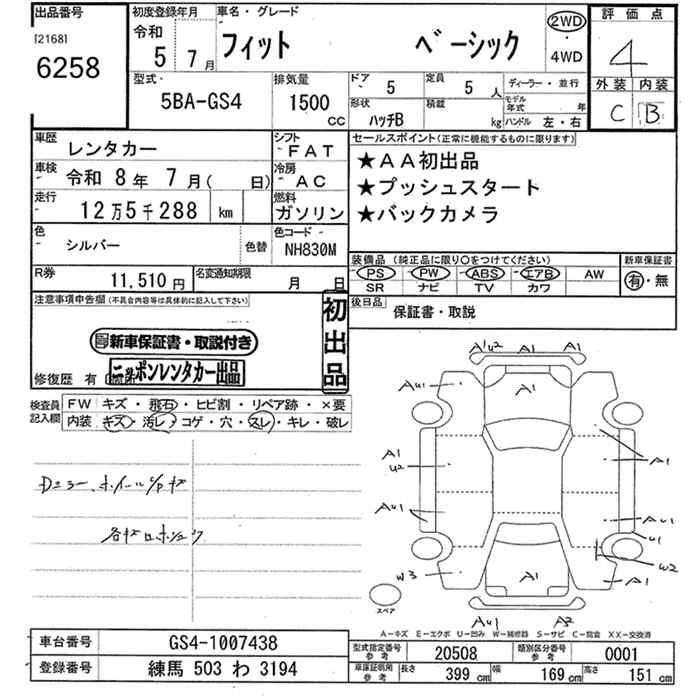 出品番号
[2168]
6258
初度登録年月
令和
5 7月
車名・グレード
フィット ベーシック
2WD
・
4WD
評価点
4
外装 内装
C B
型式
5BA-GS4
排気量
1500
CC
ドア 5
定員 5人
ディーラー・並行
形状 ハッチB
積載 kg
モデル年式 年
ハンドル 左・右
車歴 レンタカー
シフト FAT
車検 令和 8年 7月( 日)
冷房 AC
走行 12万5千288 km
燃料 ガソリン
色 シルバー
色替
色コード NH830M
R券 11,510円
名変通知期限 月 日
セールスポイント(正常に機能するものに限ります)
★AA初出品
★プッシュスタート
★バックカメラ
装備品 (純正品に限り○をつけてください)
PS PW ABS エアB AW
SR ナビ TV カワ
新車保証書
有・無
後日品 保証書・取説
注意事項申告欄(不具合内容等は具体的に記入して下さい)
新車保証書・取説付き
ニッポンレンタカー出品
初出品
修復歴 有
検査員記入欄
FW キズ・飛石・ヒビ割・リペア跡・×要
内装 キズ・汚レ・コゲ・穴・スレ・キレ・破レ
A1U2 A1 A1
AU1 A1
A1
U2
A1
AU1
AU1
U1
W3
W2
A1
A1
スペア
AU1 A2
A-キズ E-エクボ U-凹み W-補修跡 S-サビ C-腐食 XX-交換済
車台番号 GS4-1007438
登録番号 練馬 503 わ 3194
型式指定番号 参考 20508
類別区分番号 参考 0001
車庫証明用 参考 長さ 399cm 幅 169cm 高さ 151cm